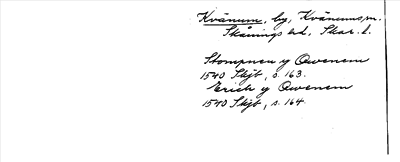 Kvänum, by, Kvänums sn.
Skånings hd, Skar. l.
Stompnen y Qwenem
1540 Skjb, s. 163.
Erich y Qwenem
1540 Skjb, s. 164.